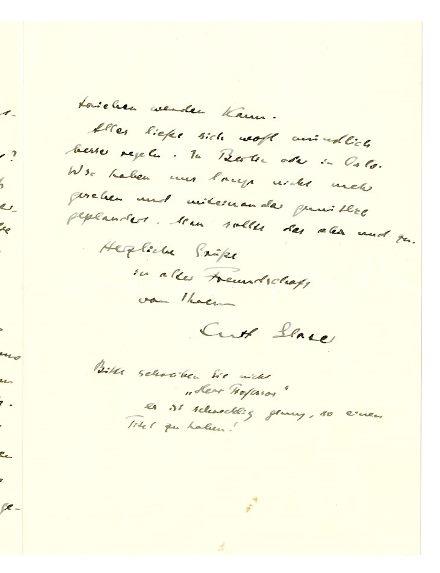 werden kann.
Alles ließe sich wohl mündlich
besser regeln. In Berlin oder in Oslo.
Wir haben uns lange nicht mehr
gesehen und miteinander
geplaudert. Man sollte das aber und zu.
Herzliche Grüße
in alter Freundschaft
von Ihrem
Curt
Bitte schreiben Sie nicht
„Herr Professor"
es ist schrecklich genug, so einen
Titel zu haben!